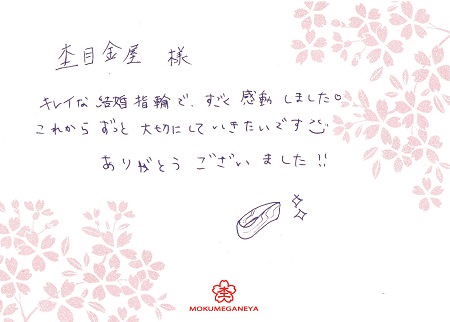 杢目金屋 様
キレイな 結婚指輪で、すごく 感動 しました。
これから ずっと 大切にして いきたいです
ありがとう ございました!!
杢
MOKUMEGANEYA